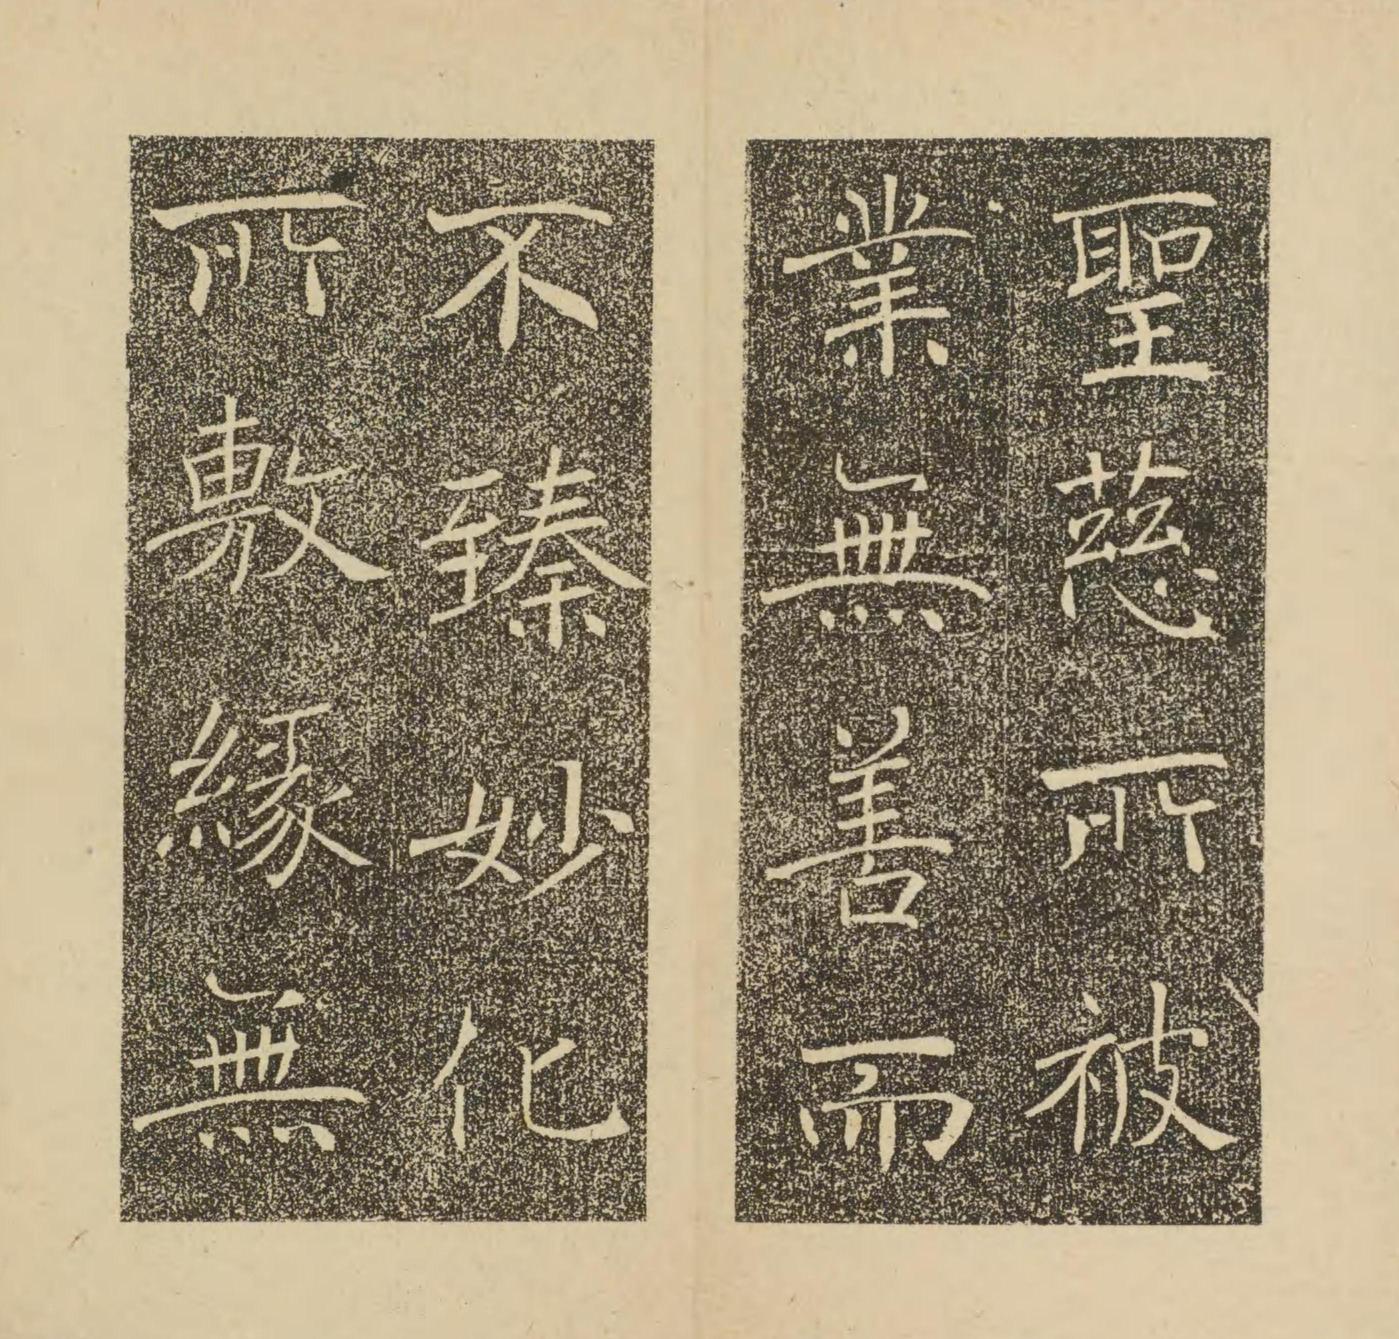 聖慈所被
業無善而
不臻妙化
所敷緣無